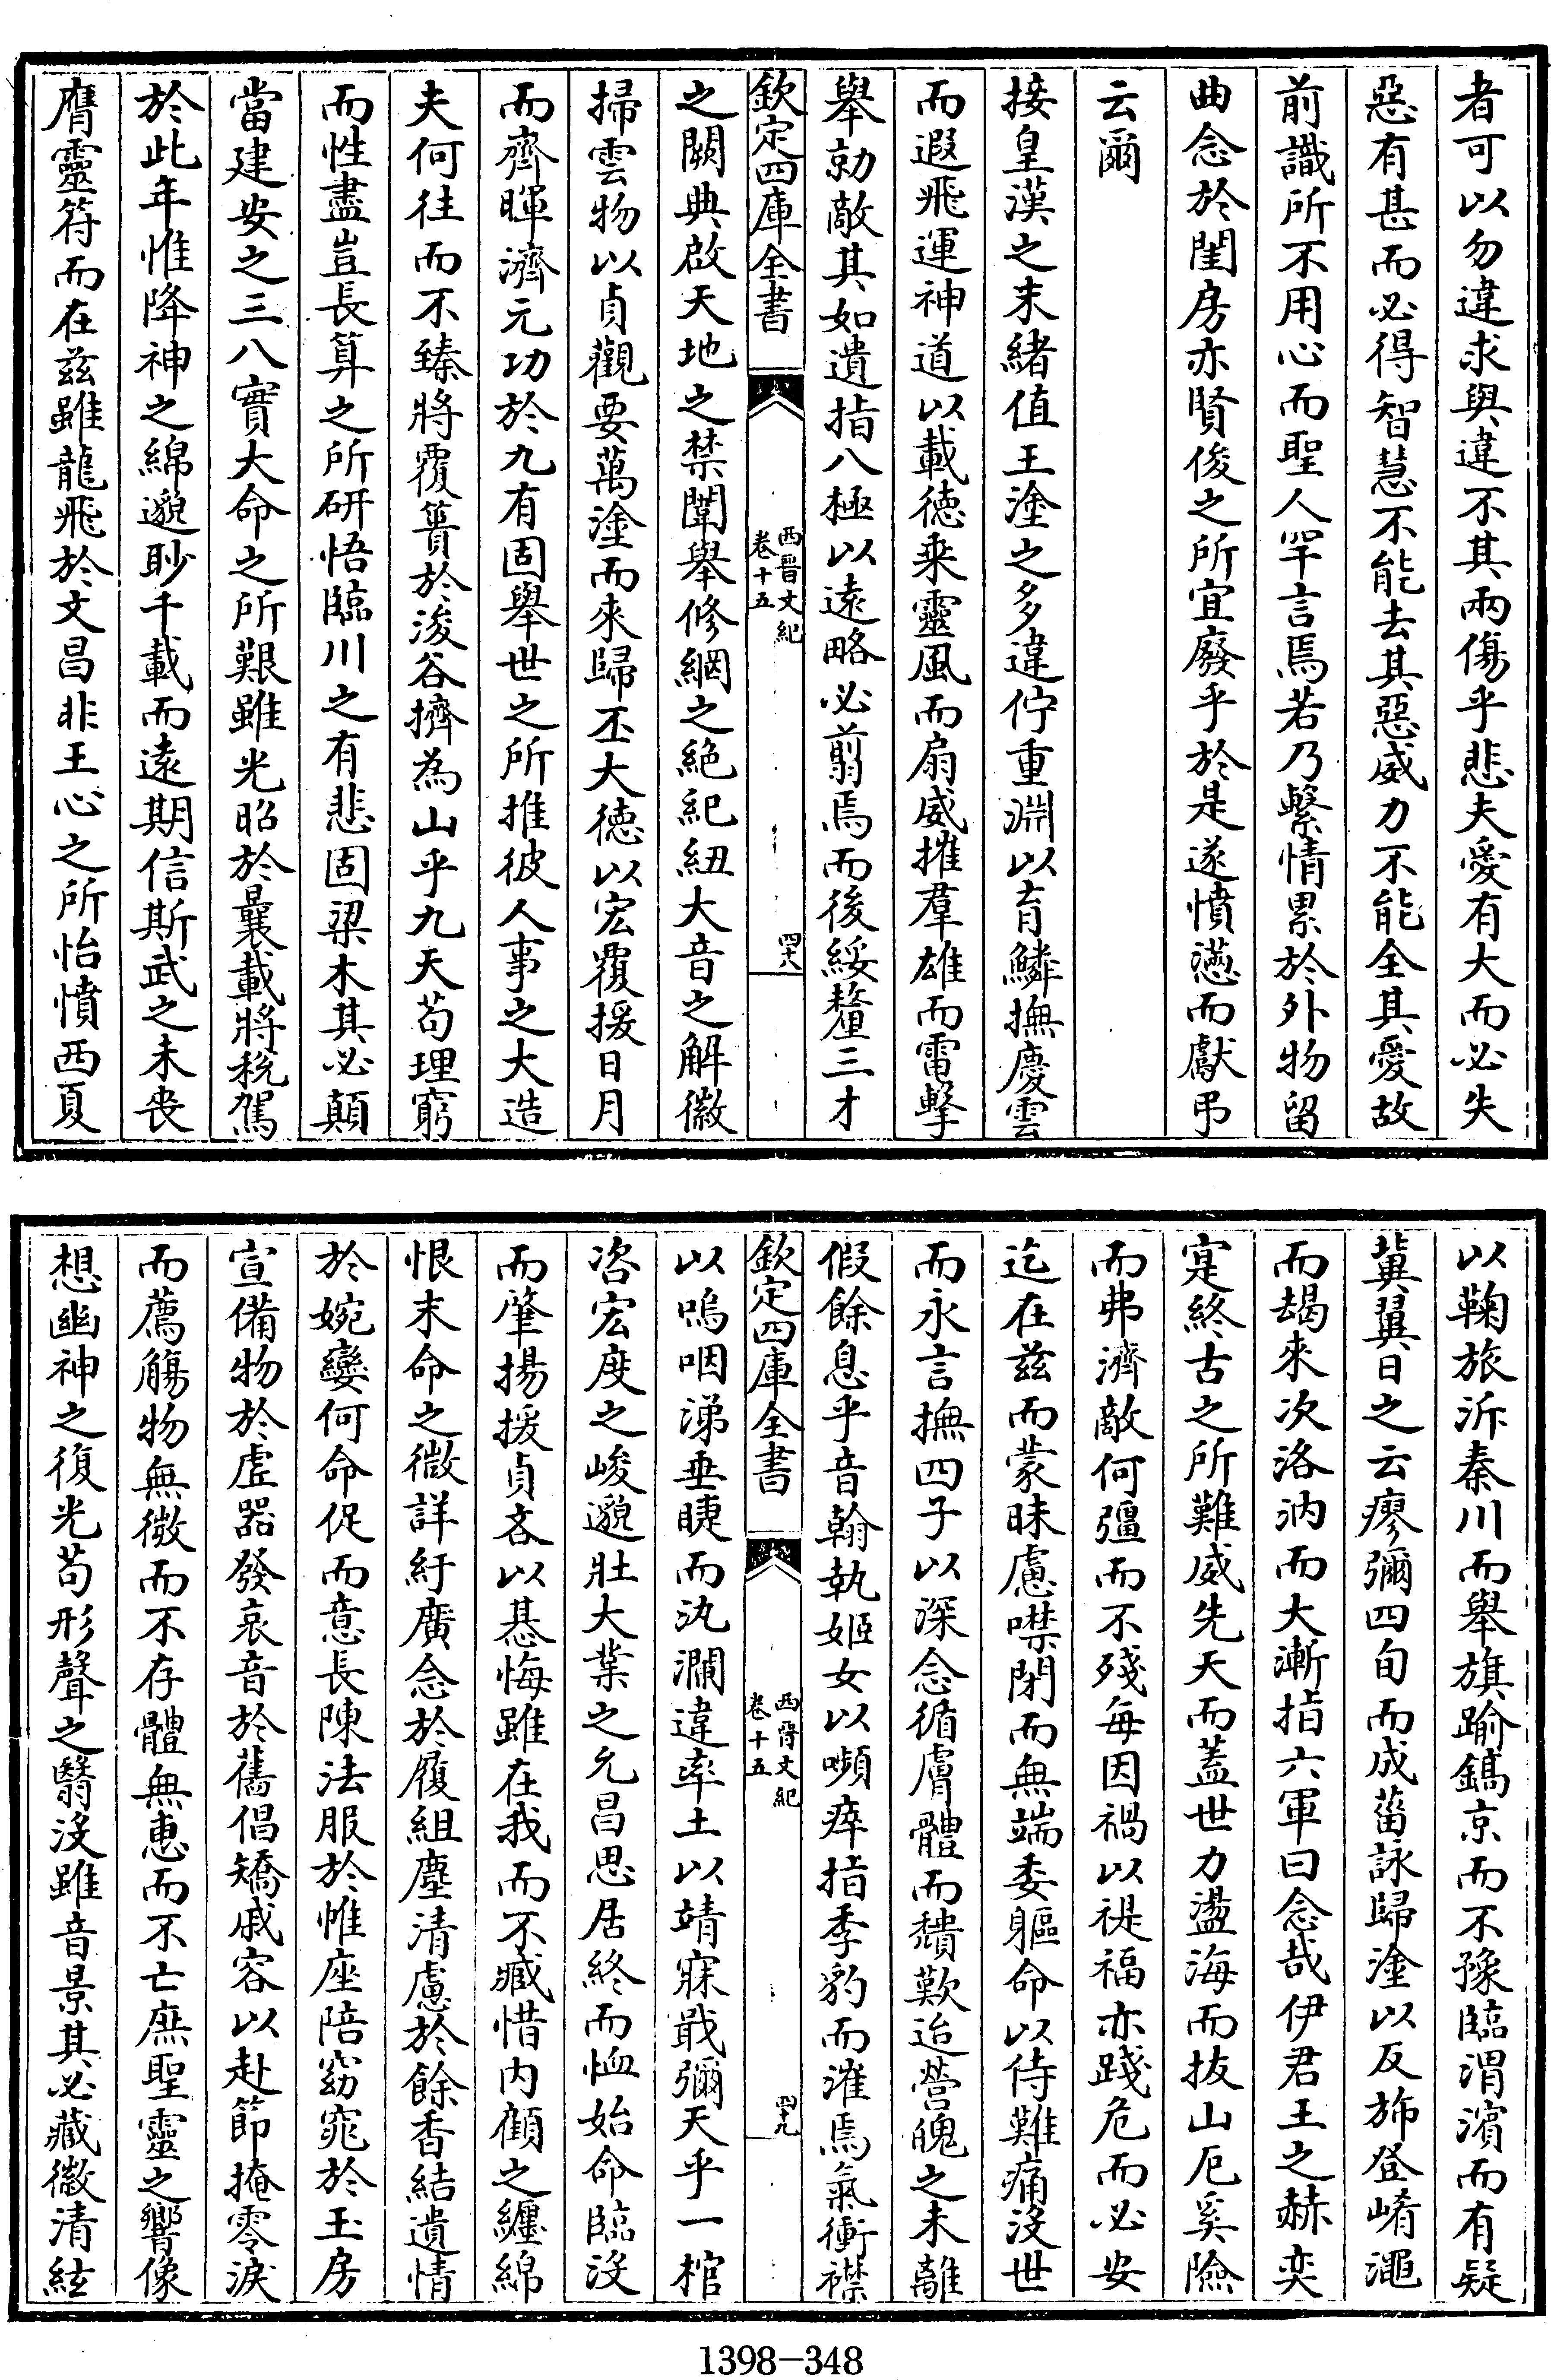 者可以勿違求與違不其兩傷乎悲夫愛有大而必失
惡有甚而必得智慧不能去其惡威力不能全其愛故
前識所不用心而聖人罕言焉若乃繫情累於外物留
曲念於閨房亦賢俊之所宜廢乎於是遂憤懣而獻弔
云爾
接皇漢之末緒值王塗之多違佇重淵以育鱗撫慶雲
而遐飛運神道以載徳乗靈風而扇威摧羣雄而電擊
舉勍敵其如遺指八極以遠略必翦焉而後綏釐三才
欽定四庫全書
西晉文紀
卷十五
四十八
之闕典啟天地之禁闈舉修綱之絶紀紐大音之解徽
掃雲物以貞觀要萬塗而來歸丕大徳以宏覆援日月
而齊暉濟元功於九有固舉世之所推彼人事之大造
夫何往而不臻將覆簣於浚谷擠為山乎九天苟理窮
而性盡豈長算之所研悟臨川之有悲固梁木其必顛
當建安之三八實大命之所艱雖光昭於曩載將稅駕
於此年惟降神之綿邈眇千載而遠期信斯武之未喪
膺靈符而在兹雖龍飛於文昌非王心之所怡憤西夏
以鞠旅泝秦川而舉旗踰鎬京而不豫臨渭濱而有疑
冀翼日之云瘳彌四旬而成菑詠歸塗以反斾登崤澠
而朅來次洛汭而大漸指六軍曰念哉伊君王之赫奕
寔終古之所難威先天而蓋世力盪海而拔山厄奚險
而弗濟敵何彊而不殘每因禍以禔福亦踐危而必安
迄在兹而蒙昧慮噤閉而無端委軀命以待難痛没世
而永言撫四子以深念循膚體而穨歎迨營魄之未離
假餘息乎音翰執姬女以嚬瘁指季豹而漼焉氣衝襟
欽定四庫全書
西晉文紀
卷十五
四十九
以嗚咽涕垂睫而汍瀾違率土以靖寐戢彌天乎一棺
咨宏度之峻邈壯大業之允昌思居終而恤始命臨没
而肇揚援貞吝以惎悔雖在我而不臧惜内顧之纏綿
恨末命之微詳紆廣念於履組塵清慮於餘香結遺情
於婉孌何命促而意長陳法服於帷座陪窈窕於玉房
宣備物於虚器發哀音於舊倡矯慼容以赴節掩零淚
而薦觴物無微而不存體無惠而不亡庶聖靈之響像
想幽神之復光苟形聲之翳没雖音景其必藏徽清絃
1398-348